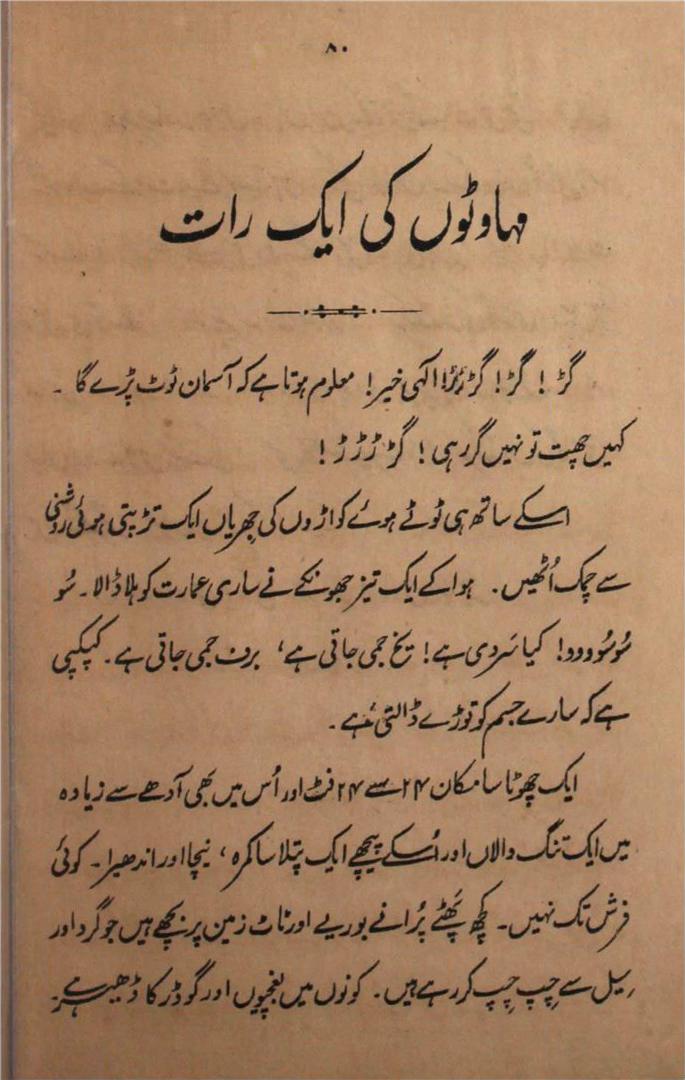 ۸۰
مہاوٹوں کی ایک رات
گڑ! گڑ! گڑڑڑ! الٰہی خیر! معلوم ہوتا ہے کہ آسمان ٹوٹ پڑے گا۔
کہیں چھت تو نہیں گر رہی! گڑڑڑڑ!
اسکے ساتھ ہی ٹوٹے ہوئے کواڑوں کی جھریاں ایک تڑپتی ہوئی روشنی
سے چمک اُٹھیں۔ ہوا کے ایک تیز جھونکے نے ساری عمارت کو ہلا ڈالا۔ سُو
سُو سُو و و و! کیا سَردی ہے! یخ جمی جاتی ہے، برف جمی جاتی ہے۔ کپکپی
ہے کہ سارے جسم کو توڑے ڈالتی ہے۔
ایک چھوٹا سا مکان ۲۴ سے ۲۴ فٹ اور اُس میں بھی آدھے سے زیادہ
میں ایک تنگ دالان اور اُسکے پیچھے ایک پتلا سا کمرہ، نیچا اور اندھیرا۔ کوئی
فرش تک نہیں۔ کچھ پھَٹے پُرانے بوریے اور ٹاٹ زمین پر بچھے ہیں جو گرد اور
سِیل سے چِپ چِپ کر رہے ہیں۔ کونوں میں بغچیوں اور گوڈر کا ڈھیر ہے